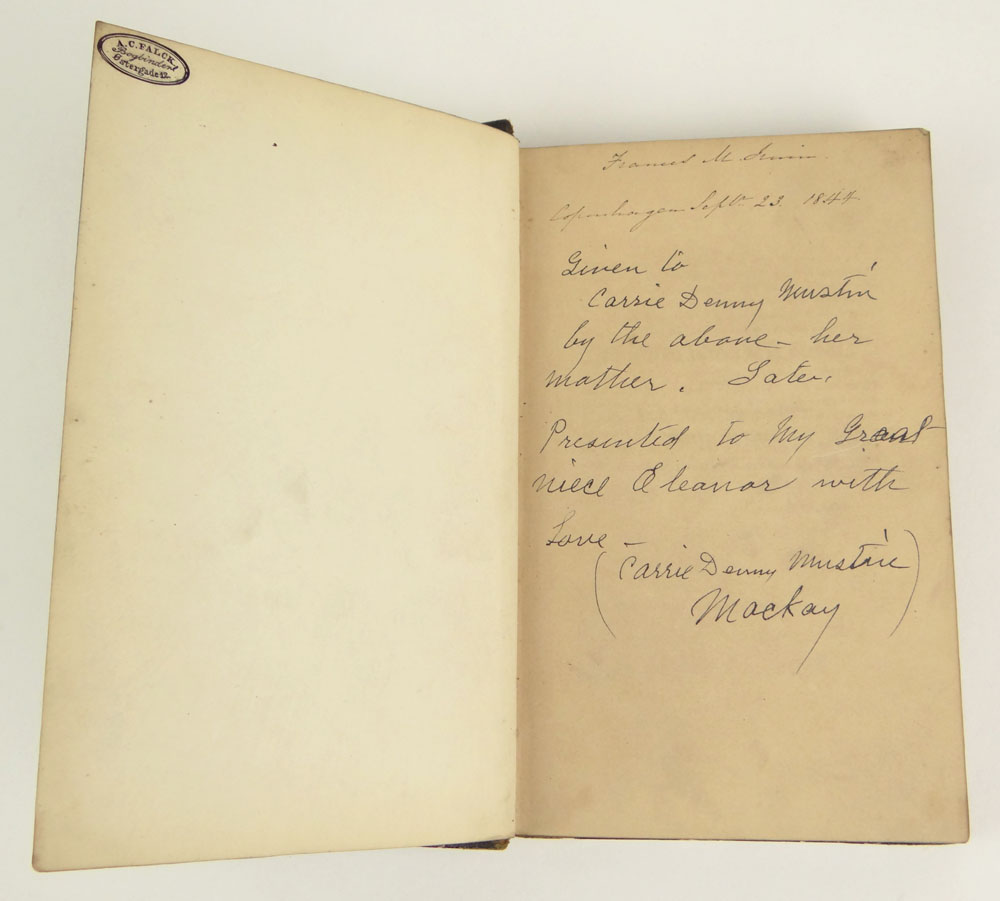 A.C. FALCK.
Bogbinder
Østergade 12.
Frances M. Irwin.
Copenhagen Sept. 23. 1844.
Given to
Carrie Denny Mustin
by the above – her
mother. Later,
Presented to My Great
niece Eleanor with
Love –
(Carrie Denny Mustin
Mackay)